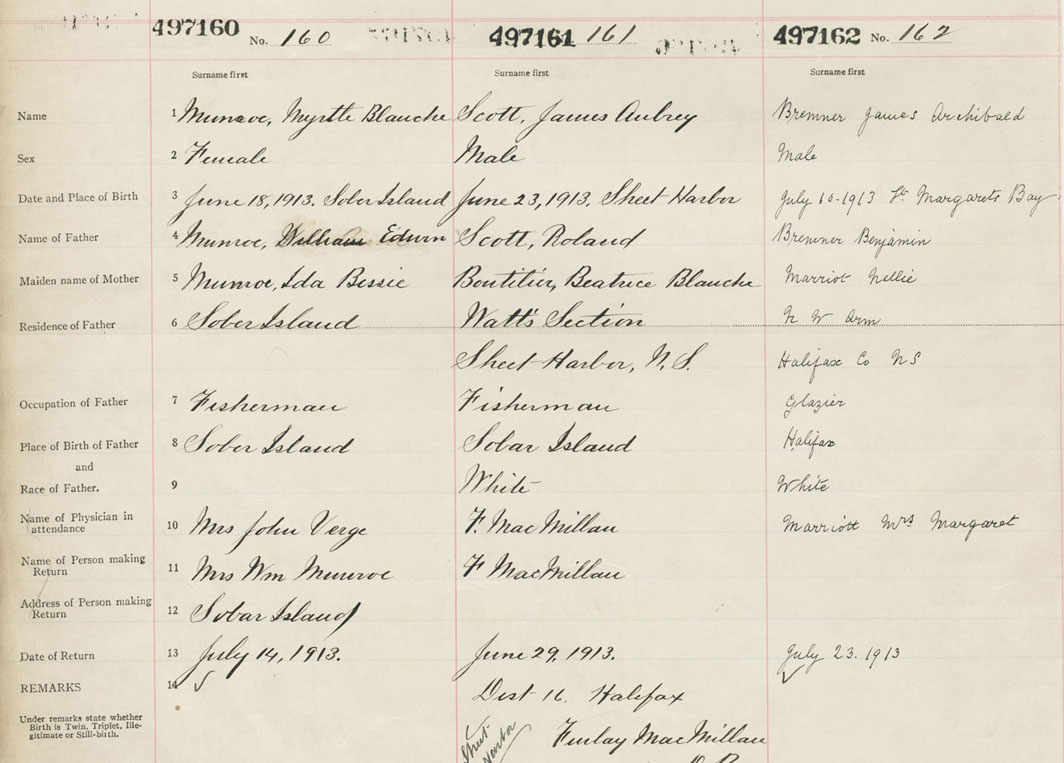 497160 No. 160 497161 161 497162 No. 162
Surname first Surname first Surname first
Name 1 Munroe, Myrtle Blanche Scott, James Aubrey Bremner James Archibald
Sex 2 Female Male Male
Date and Place of Birth 3 June 18, 1913. Sober Island June 23, 1913. Sheet Harbor July 10-1913 St. Margarets Bay
Name of Father 4 Munroe, William Edwin Scott, Roland Bremner Benjamin
Maiden name of Mother 5 Munroe, Ida Bessie Boutilier, Beatrice Blanche Marriot Nellie
Residence of Father 6 Sober Island Watt's Section N W Arm
Sheet Harbor, N.S. Halifax Co NS
Occupation of Father 7 Fisherman Fisherman Glazier
Place of Birth of Father 8 Sober Island Sobar Island Halifax
and
Race of Father. 9 White White
Name of Physician in
attendance 10 Mrs John Verge F. MacMillan Marriott Mrs Margaret
Name of Person making
Return 11 Mrs Wm Munroe F MacMillan
Address of Person making
Return 12 Sobar Island
Date of Return 13 July 14, 1913. June 29, 1913. July 23. 1913
REMARKS 14 Dist 16. Halifax
Under remarks state whether
Birth is Twin, Triplet, Ille-
gitimate or Still-birth.
Sheet Harbor
Finlay MacMillan